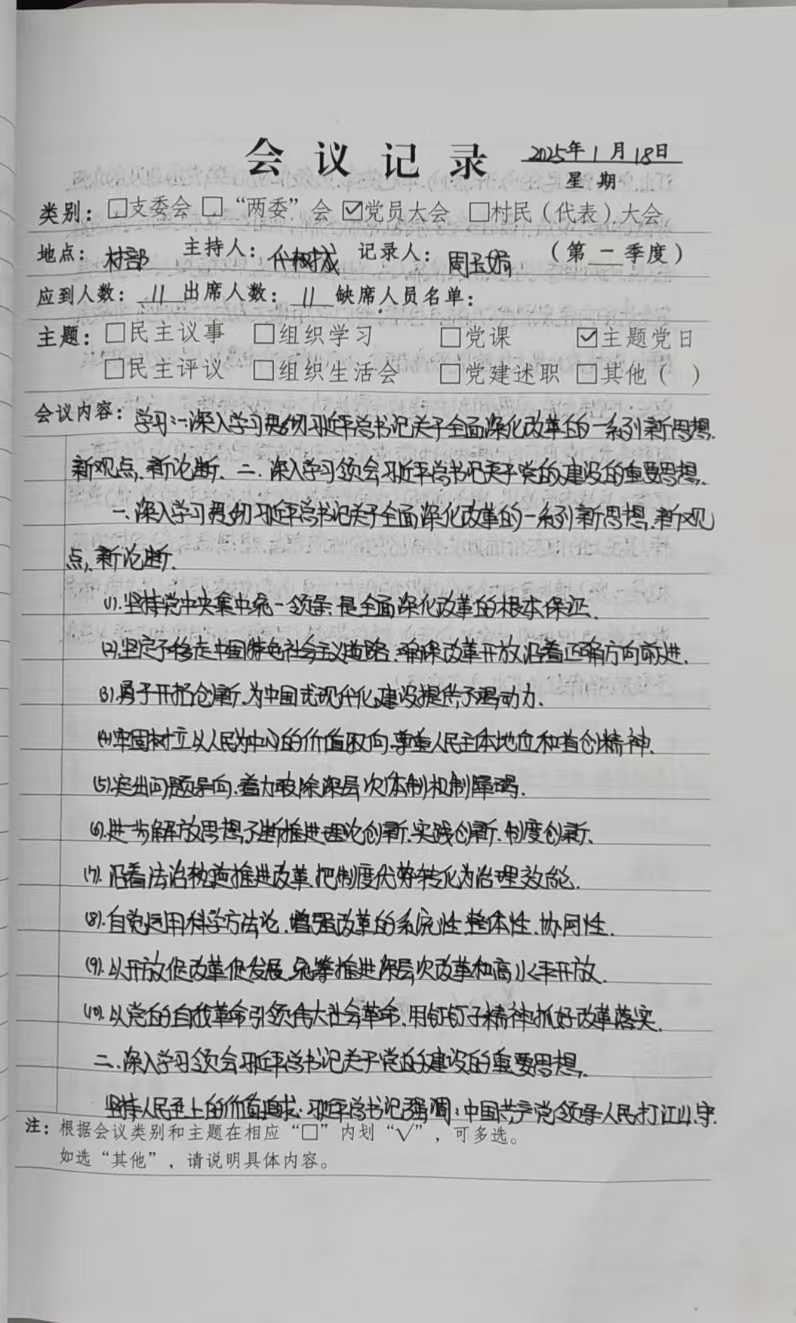 会议记录 2025年1月18日
星期
类别：□支委会 □“两委”会 ☑党员大会 □村民（代表）大会
地点：村部 主持人： 记录人：周玉娟 （第一季度）
应到人数：11 出席人数：11 缺席人员名单：
主题：□民主议事 □组织学习 □党课 ☑主题党日
□民主评议 □组织生活会 □党建述职 □其他（ ）
会议内容：学习：一.深入学习贯彻习近平总书记关于全面深化改革的一系列新思想.
新观点、新论断. 二.深入学习领会习近平总书记关于党的建设的重要思想.
一、深入学习贯彻习近平总书记关于全面深化改革的一系列新思想.新观
点,新论断.
(1).坚持党中央集中统一领导是全面深化改革的根本保证.
(2).坚定不移走中国特色社会主义道路.确保改革开放沿着正确方向前进.
(3).勇于开拓创新.为中国式现代化建设提供不竭动力.
(4)牢固树立以人民为中心的价值取向.尊重人民主体地位和首创精神.
(5).突出问题导向.着力破除深层次体制机制障碍.
(6).进一步解放思想.不断推进理论创新.实践创新.制度创新.
(7).沿着法治轨道推进改革.把制度优势转化为治理效能.
(8).自觉运用科学方法论.增强改革的系统性.整体性.协同性.
(9).以开放促改革促发展.统筹推进深层次改革和高水平开放.
(10).以党的自我革命引领伟大社会革命.用钉钉子精神抓好改革落实.
二.深入学习领会习近平总书记关于党的建设的重要思想.
坚持人民至上的价值追求.习近平总书记强调：中国共产党领导人民打江山.守.
注：根据会议类别和主题在相应“□”内划“√”，可多选。
如选“其他”，请说明具体内容。